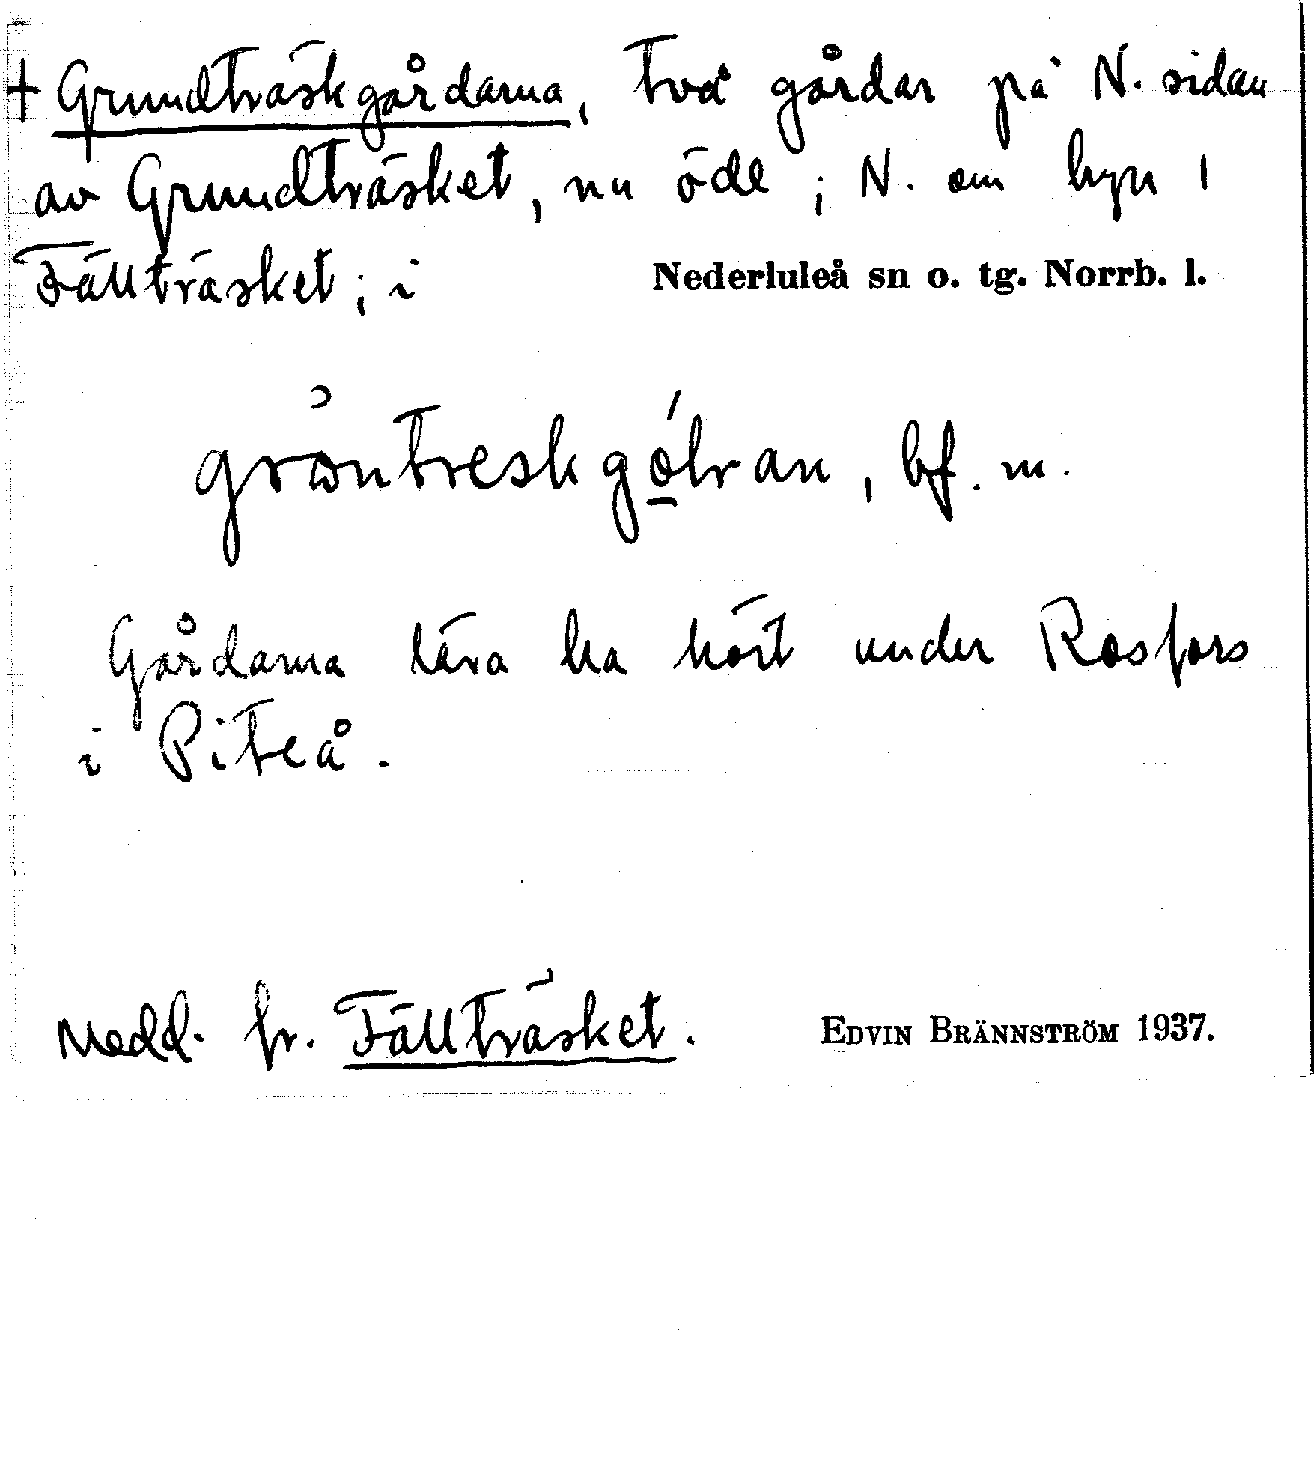 + Grundträskgårdarna, två gårdar på N. sidan
av Grundträsket, nu öde; N. om byn i
Fällträsket; i Nederluleå sn o. tg. Norrb. l.
gröntreskgo̲lran, bf. m.
Gårdarna lära ha hört under Rosfors
i Piteå.
Medd. fr. Fällträsket. EDVIN BRÄNNSTRÖM 1937.